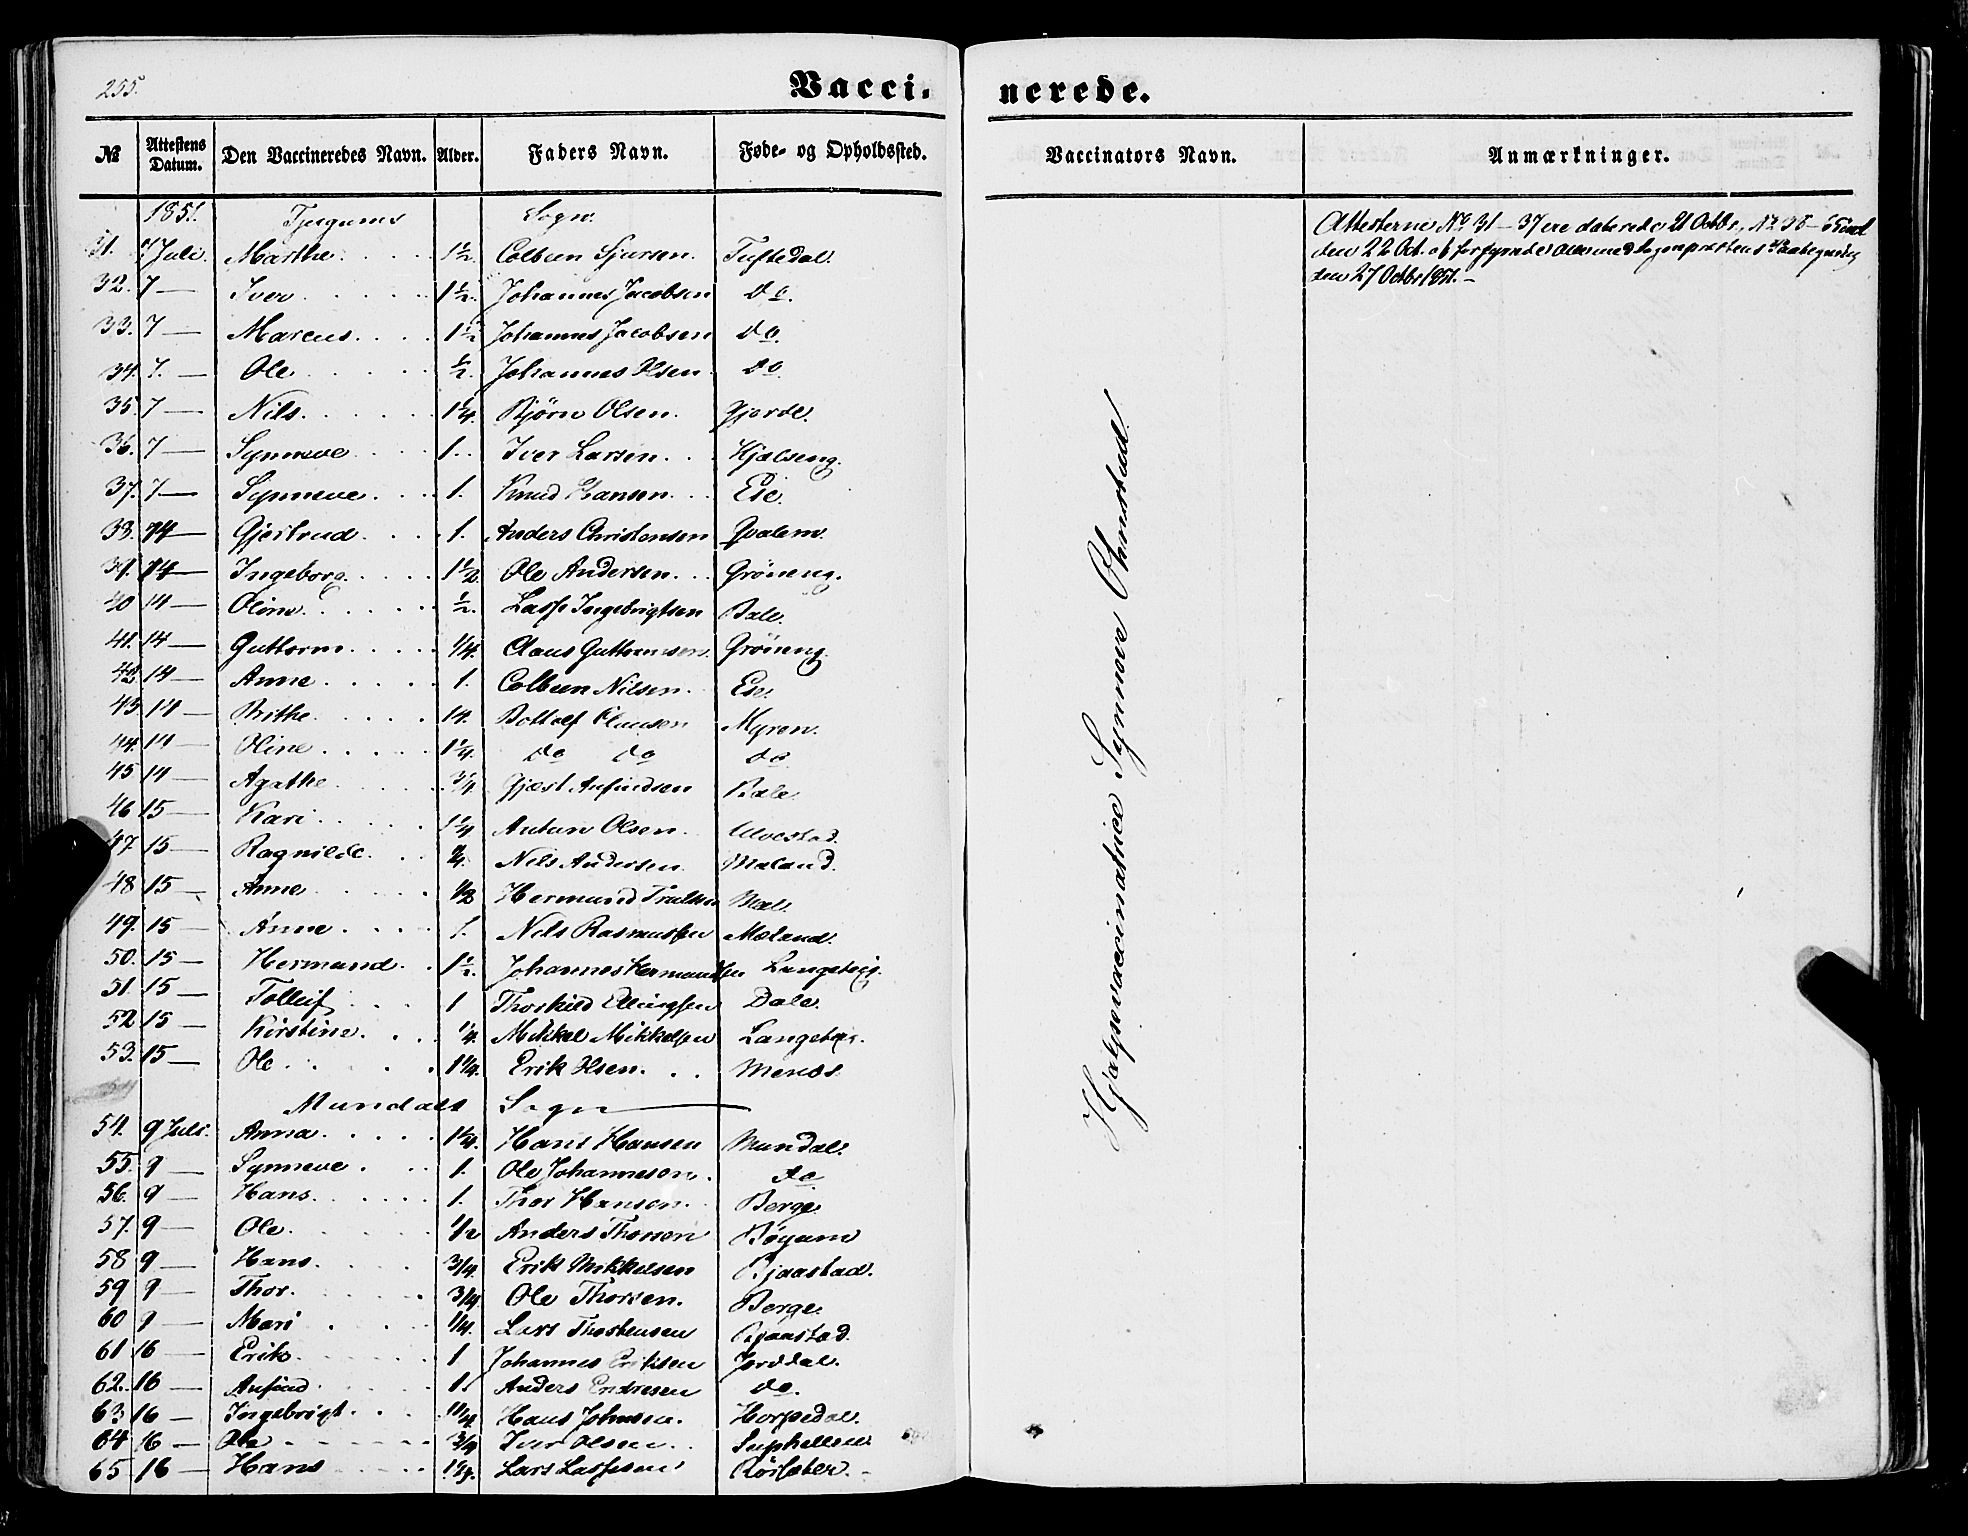 255.
Vacci-
nerede.
№ Attestens Datum. Den Vaccineredes Navn. Alder. Faders Navn. Føde- og Opholdssted.
Vaccinators Navn. Anmærkninger.
1851. Tjugums Sogn.
31. 7 Juli. Marthe 1½ Colbein Sjursen. Tuftedal.
32. 7 — Iver 1½ Johannes Jacobsen do.
33. 7 — Marcus 1½ Johannes Jacobsen do.
34. 7. — Ole ½ Johannes Olsen do
35. 7 — Nils. 1¼. Bjørn Olsen. Gjerde.
36. 7 — Synneve 1. Iver Larsen. Hjelseng.
37. 7 — Synneve. 1. Knud Hansen. Ese.
38. 14 — Gjertrud 1. Anders Christensen Qvalem.
39. 14 — Ingeborg. 1½. Ole Andersen. Grøneng.
40 14 — Oline. ½. Lasse Ingebrigtsen Bale.
41. 14 — Guttorm. ¼. Claus Guttormsen. Grøneng.
42 14 — Anne 1. Colbein Nilsen. Ese.
43. 14 — Brithe. 14. Bottolf Clausen Myren.
44. 14 — Oline 1¼. do do do
45 14 — Agathe ¾. Gjest Anfindsen Bale.
46 15 — Kari 1¼ Antun Olsen. Ulvestad.
47. 15 — Ragnilde. Nils Andersen. Mæland.
48 15 — Anne ½ Hermund Trulsen Mæl.
49. 15 — Anne 1. Nils Rasmussen Mæland.
50. 15 — Hermund. 1½. Johannes Hermundsen Langeteig.
51. 15 — Tolleif 1 Thorkild Ellingsen Dale.
52 15 — Kirstine. ¼. Mikkel Mikkelsen Langeteig.
53. 15 — Ole 1¼. Erik Olsen. Menæs.
Mundals Sogn —
54. 9 Juli. Anna 1¼. Hans Hansen Mundal.
55. 9 — Synneve 1. Ole Johannesen. do
56. 9 — Hans 1. Thor Hansen. Berge
57. 9 — Ole. ½ Anders Thorsen Bøyum
58 9 — Hans. ¾. Erik Mikkelsen Bjaastad.
59 9 — Thor. ¾ Ole Thorsen. Berge.
60 9 — Mari ¼. Lars Thorstensen Bjaastad.
61 16 — Erik 1 Johannes Eriksen Jorddal.
62. 16 — Anfind 1. Anders Endresen do.
63 16 — Ingebrigt. 1¼. Hans Johnsen. Horpedal.
64 16 — Ole ¾ Iver Olsen Suphellen
65 16 — Hans Lars Lassesen Rørsæter. -
Hjælpevaccinatrice Synneve Ohnstad.
Attesterne No 31 — 37 ere daterede 21 Octbr, No 38 — 65 incl
den 22 Oct. og forsynede alle med Sognepræstens Paategning
den 27 Octbr 1851. —